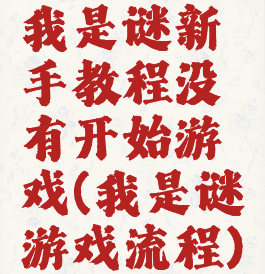 我是谜新
手教程没
有开始游
戏(我是谜
游戏流程)